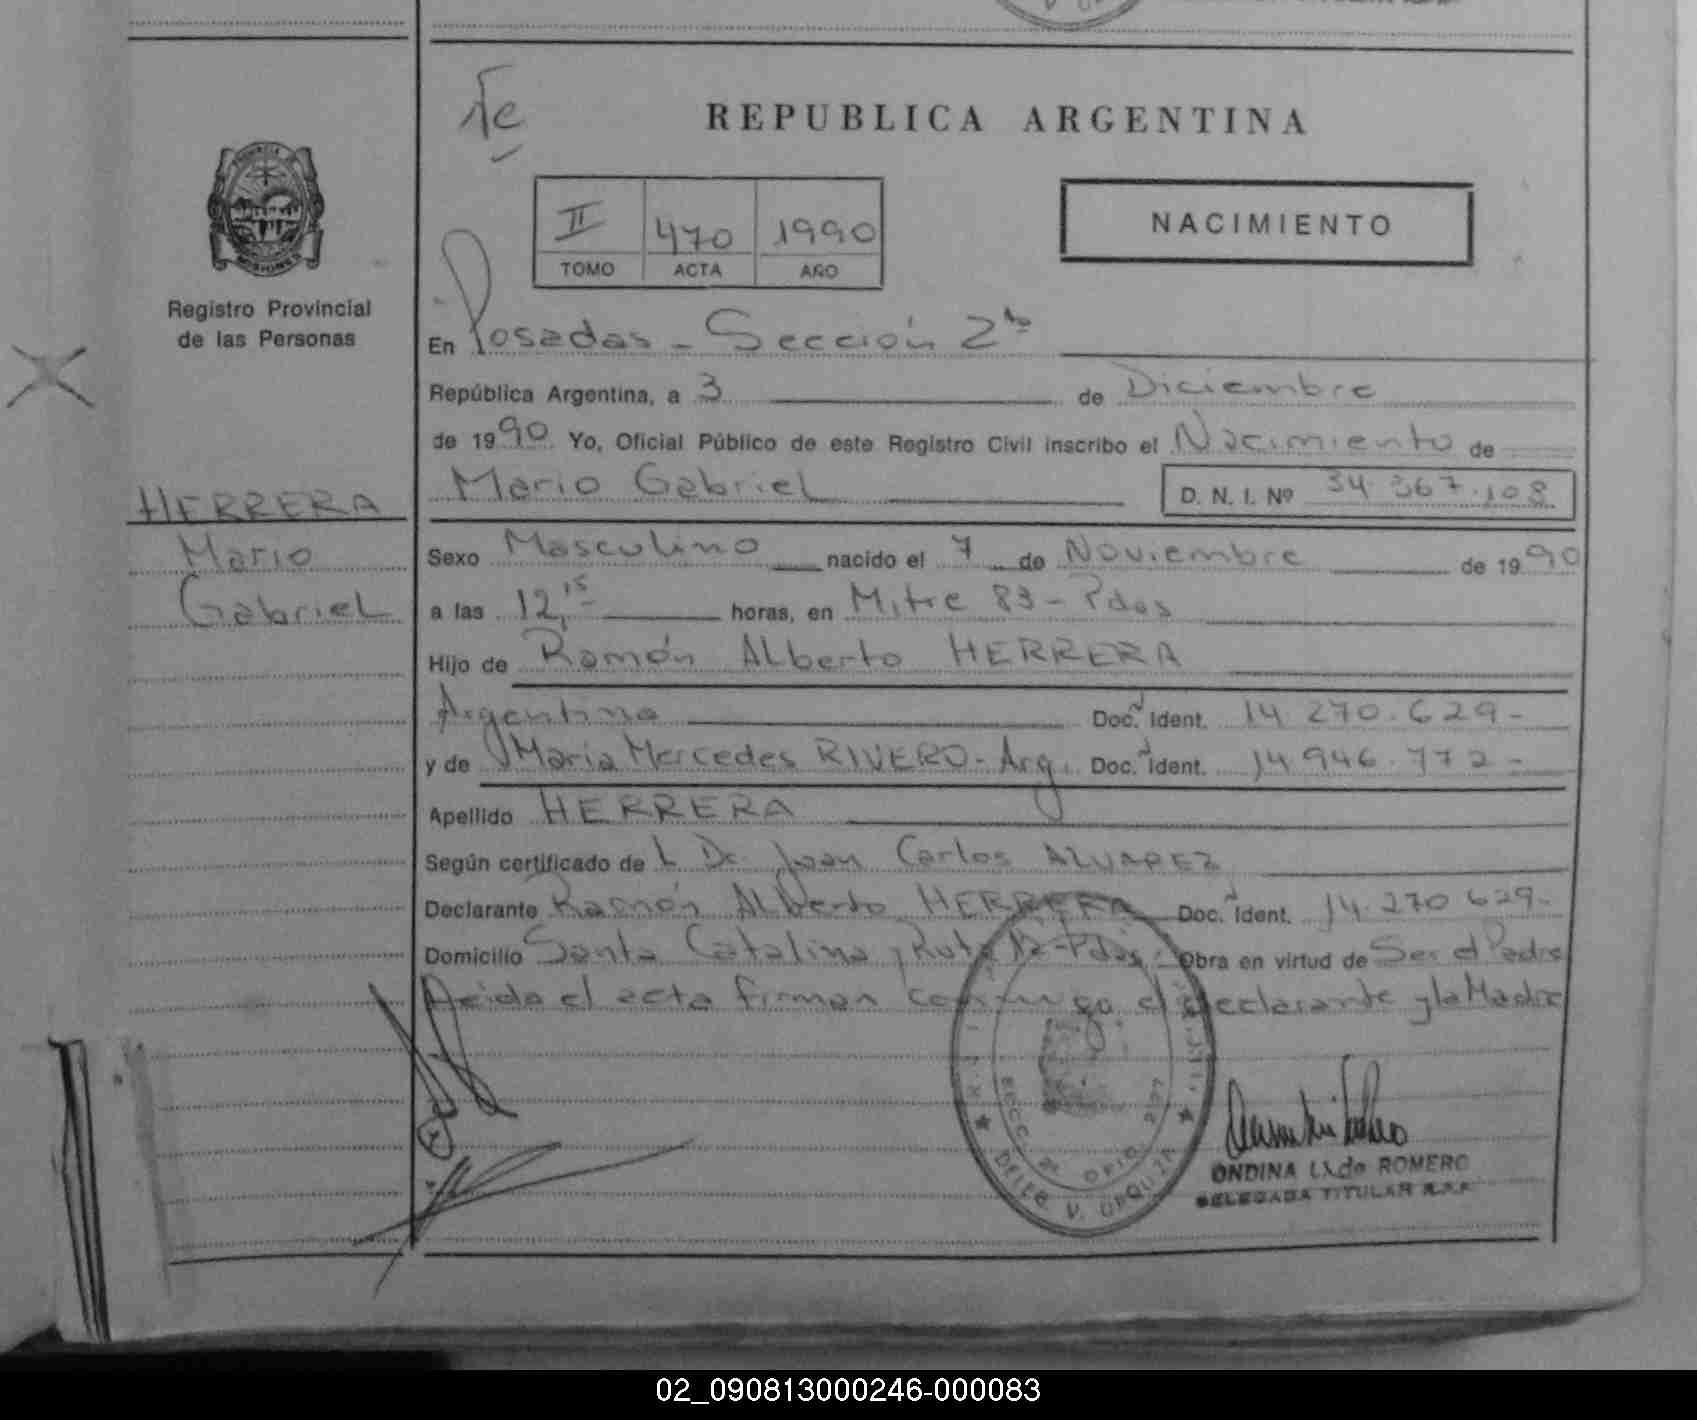 REPUBLICA ARGENTINA
II 470 1990
TOMO ACTA AÑO
NACIMIENTO
PROVINCIA
MISIONES
Registro Provincial
de las Personas
HERRERA
Mario
Gabriel
En Posadas - Sección 2da
República Argentina, a 3 de Diciembre
de 1990 Yo, Oficial Público de este Registro Civil inscribo el Nacimiento de
Mario Gabriel D. N. I. Nº 34.367.108
Sexo Masculino nacido el 7 de Noviembre de 1990
a las 12,15 horas, en Mitre 83 - Pdas
Hijo de Ramón Alberto HERRERA
Argentino Doc. Ident. 14.270.629-
y de María Mercedes RIVERO - Arg. Doc. Ident. 14.946.772-
Apellido HERRERA
Según certificado de L Dr. Juan Carlos ALVAREZ
Declarante Ramón Alberto HERRERA Doc. Ident. 14.270.629-
Domicilio Santa Catalina y Ruta 12 - Pdas. Obra en virtud de Ser el Padre
Leída el acta firman conmigo el declarante y la Madre
SECC. 2ª DPTO.
DELEG. V. URQUIZA
ONDINA L. de ROMERO
DELEGADA TITULAR R.P.P.
02_090813000246-000083